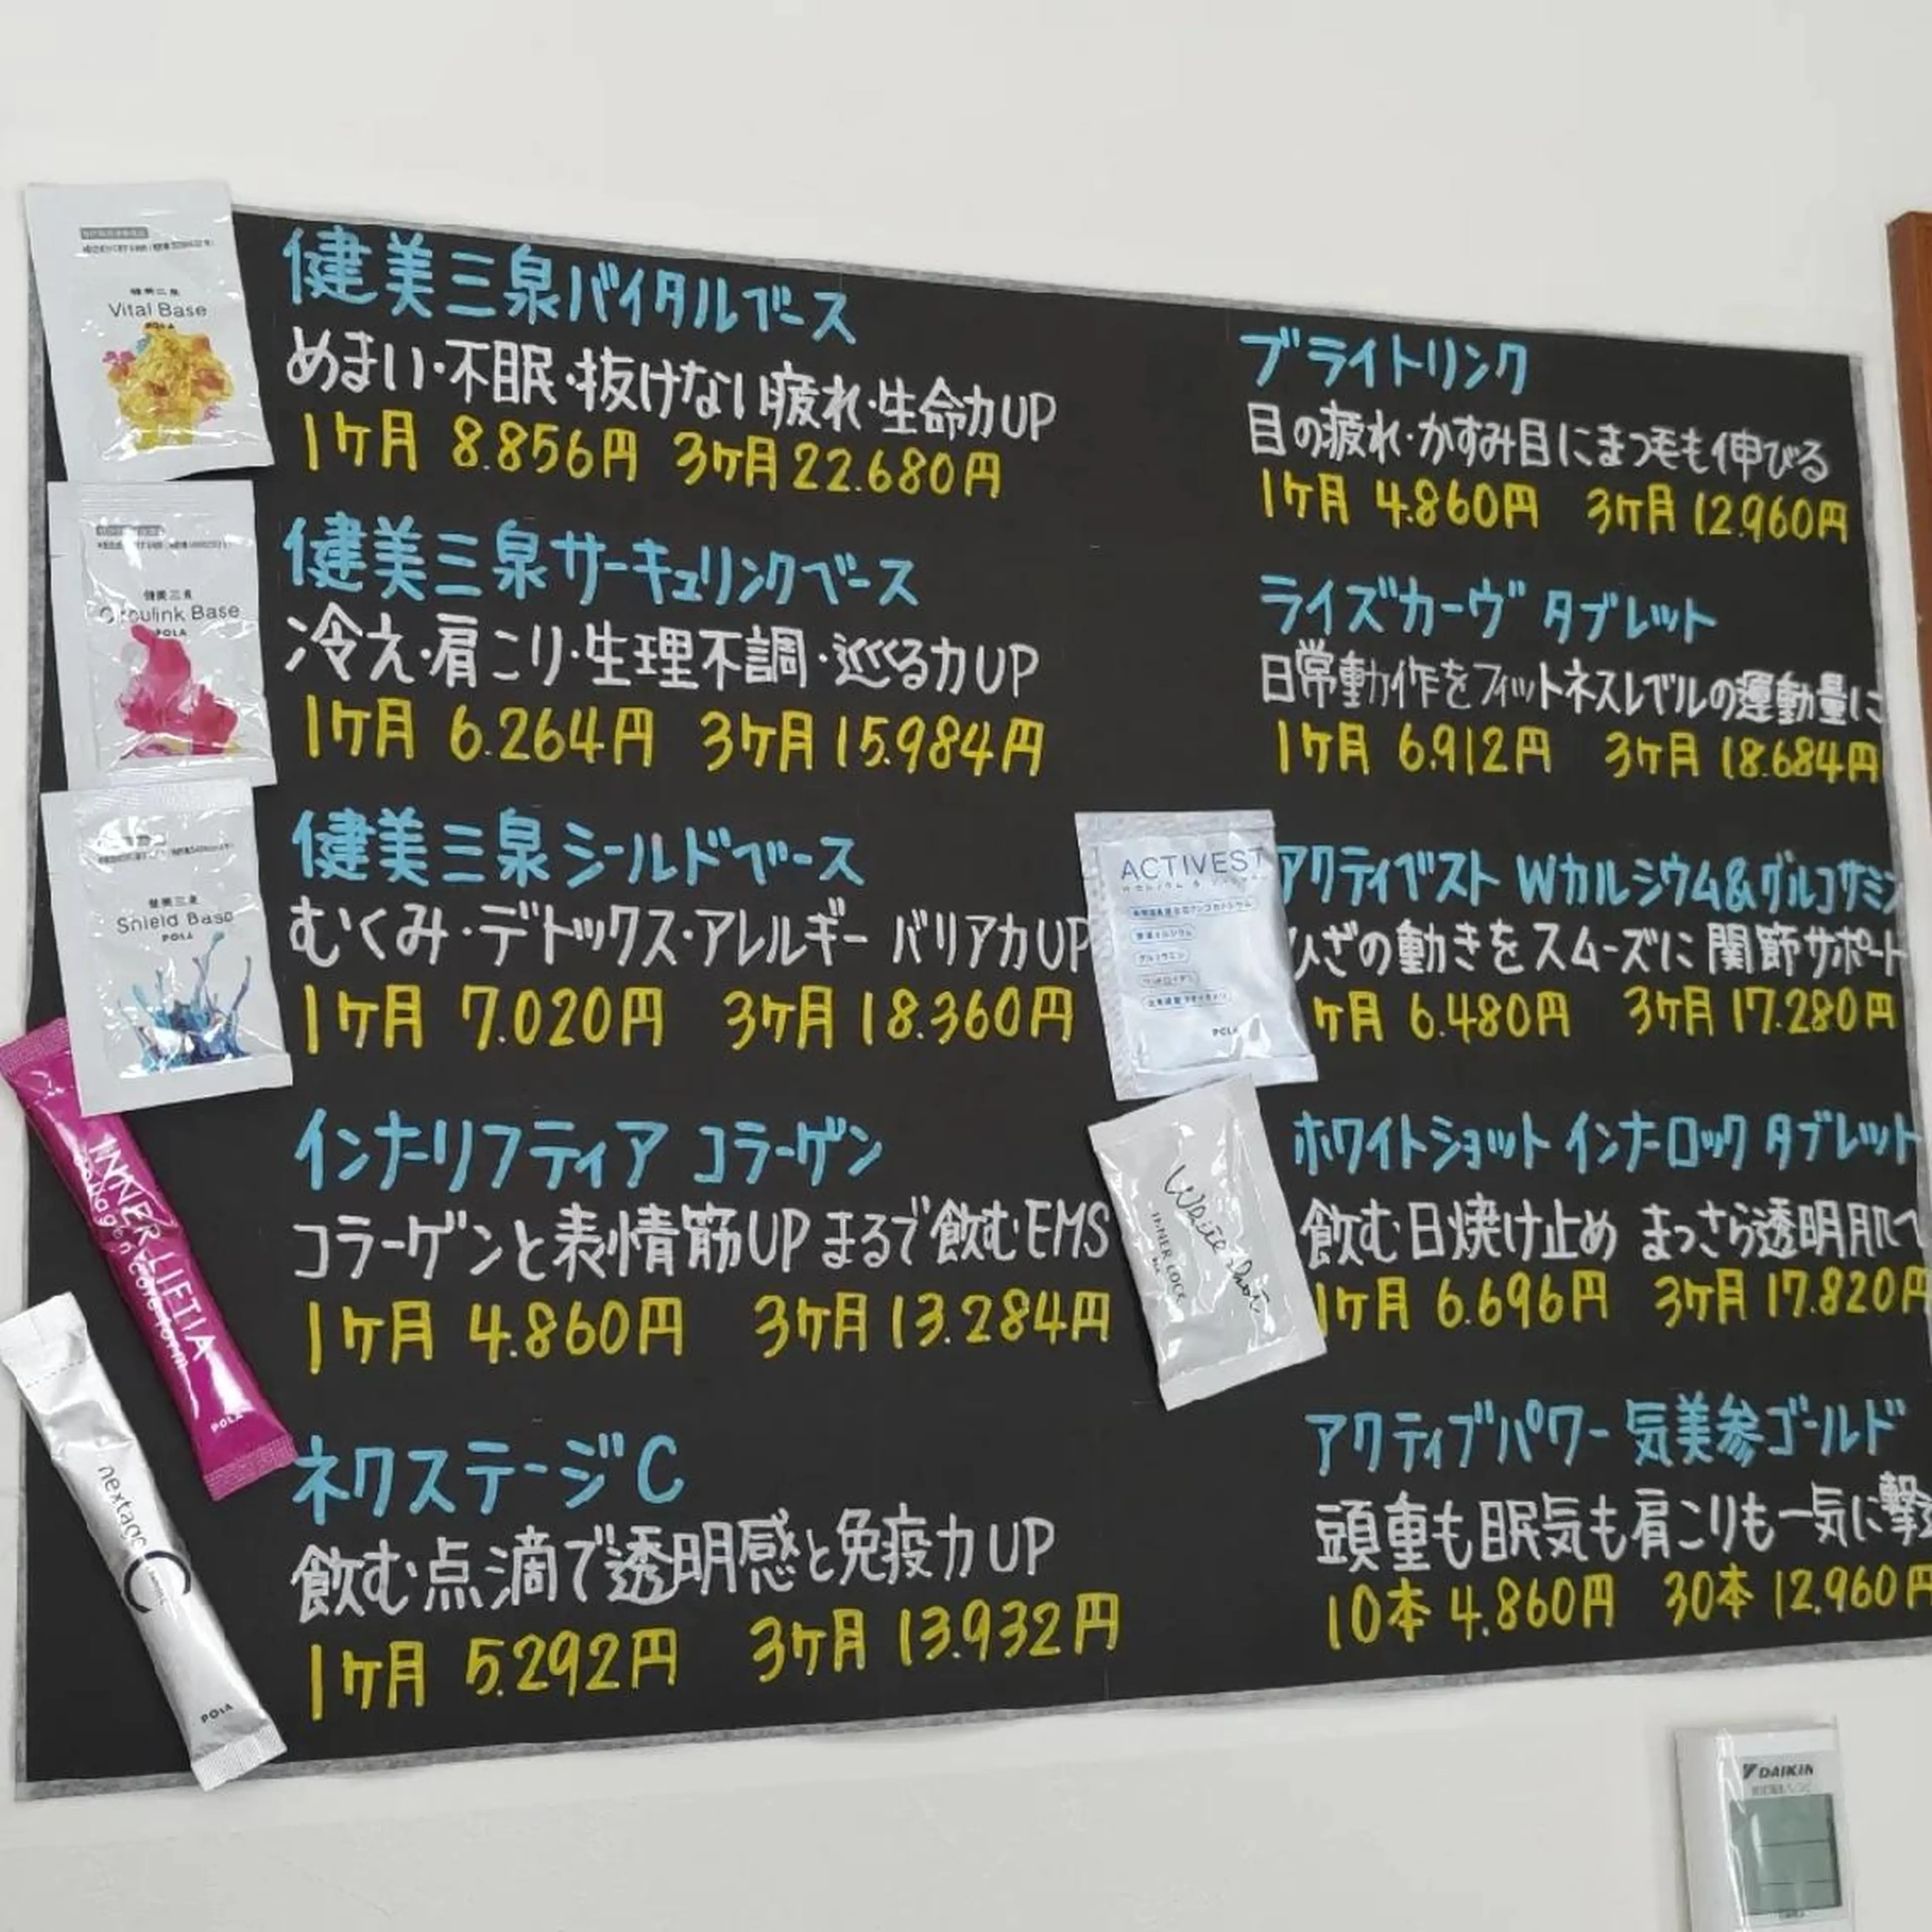 健美三泉バイタルベース
めまい・不眠・抜けない疲れ・生命力UP
1ヶ月 8.856円 3ヶ月 22.680円
健美三泉サーキュリンクベース
冷え・肩こり・生理不調・巡る力UP
1ヶ月 6.264円 3ヶ月 15.984円
健美三泉シールドベース
むくみ・デトックス・アレルギー バリア力UP
1ヶ月 7.020円 3ヶ月 18.360円
インナーリフティア コラーゲン
コラーゲンと表情筋UP まるで飲むEMS
1ヶ月 4.860円 3ヶ月 13.284円
ネクステージC
飲む点滴で透明感と免疫力UP
1ヶ月 5.292円 3ヶ月 13.932円
ブライトリンク
目の疲れ・かすみ目にまつ毛も伸びる
1ヶ月 4.860円 3ヶ月 12.960円
ライズカーヴ タブレット
日常動作をフィットネスレベルの運動量に
1ヶ月 6.912円 3ヶ月 18.684円
アクティベスト Wカルシウム&グルコサミン
ひざの動きをスムーズに 関節サポート
ヶ月 6.480円 3ヶ月 17.280円
ホワイトショット インナーロック タブレット
飲む日焼け止め まっさら透明肌へ
1ヶ月 6.696円 3ヶ月 17.820円
アクティブパワー 気美参ゴールド
頭重も眠気も肩こりも一気に撃
10本 4.860円 30本 12.960円
健美三泉
Vital Base
POLA
健美三泉
Circulink Base
POLA
健美三泉
Shield Base
POLA
INNER LIFTIA
POLA
nextage
POLA
ACTIVEST
POLA
White Shot
INNER LOCK
DAIKIN